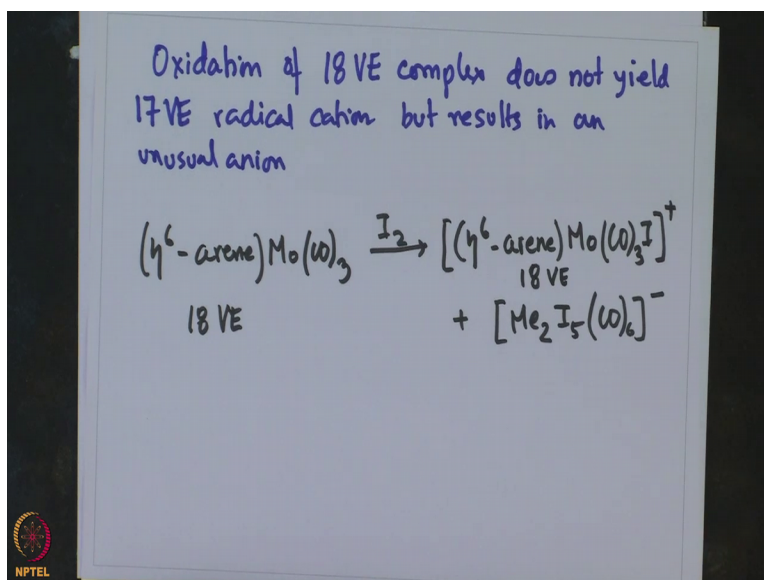 Oxidation of 18 VE complex does not yield
17 VE radical cation but results in an
unusual anion
(η⁶-arene)Mo(CO)₃ —I₂→ [(η⁶-arene)Mo(CO)₃I]⁺
18 VE
18 VE + [Me₂I₅(CO)₆]⁻
NPTEL